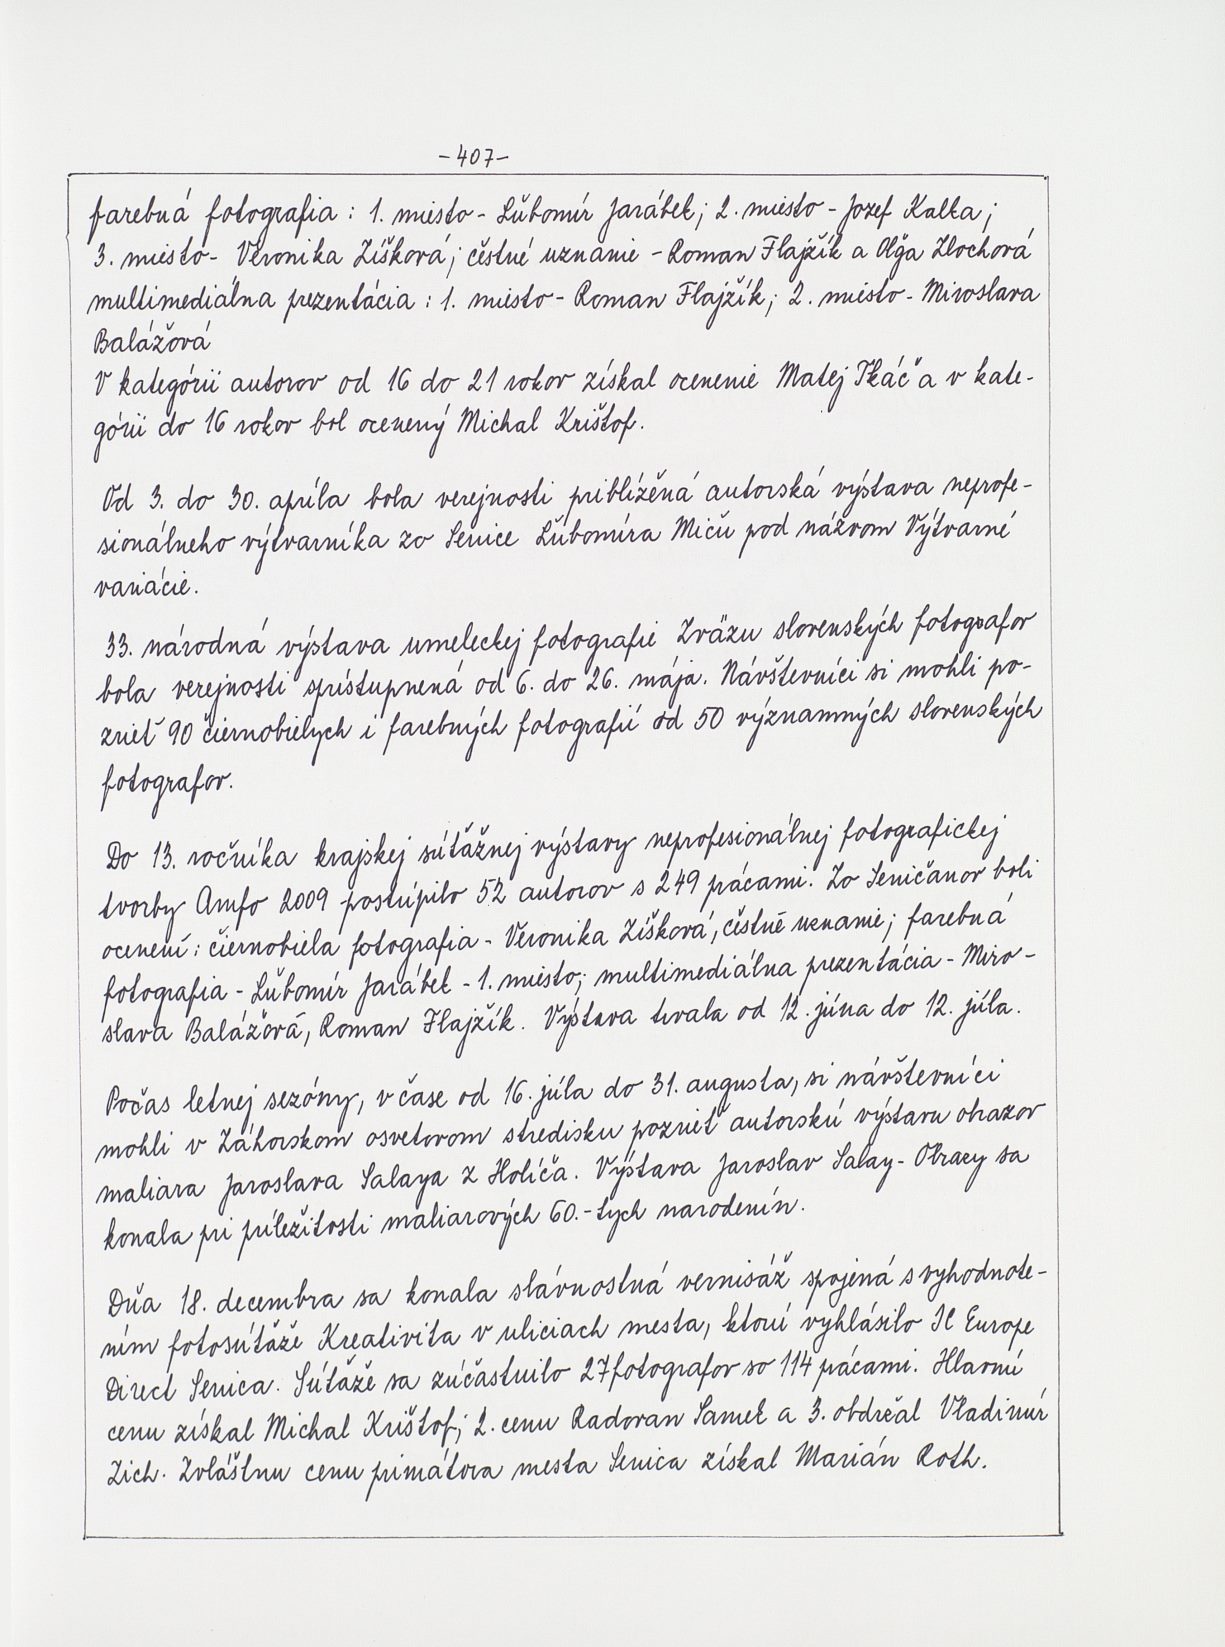 -407-
farebná fotografia : 1. miesto - Ľubomír Jarábek; 2. miesto - Jozef Kalka;
3. miesto - Veronika Zíšková; čestné uznanie - Roman Flajžík a Oľga Zlochová
multimediálna prezentácia : 1. miesto - Roman Flajžík; 2. miesto - Miroslava
Balážová
V kategórii autorov od 16 do 21 rokov získal ocenenie Matej Tkáč a v kate-
górii do 16 rokov bol ocenený Michal Krištof.
Od 3. do 30. apríla bola verejnosti priblížená autorská výstava neprofe-
sionálneho výtvarníka zo Senice Ľubomíra Miču pod názvom Výtvarné
variácie.
33. národná výstava umeleckej fotografie Zväzu slovenských fotografov
bola verejnosti sprístupnená od 6. do 26. mája. Návštevníci si mohli po-
zrieť 90 čiernobielych i farebných fotografií od 50 významných slovenských
fotografov.
Do 13. ročníka krajskej súťažnej výstavy neprofesionálnej fotografickej
tvorby Amfo 2009 postúpilo 52 autorov s 249 prácami. Zo Seničanov boli
ocenení: čiernobiela fotografia - Veronika Zíšková, čestné uznanie; farebná
fotografia - Ľubomír Jarábek - 1. miesto; multimediálna prezentácia - Miro-
slava Balážová, Roman Flajžík. Výstava trvala od 12. júna do 12. júla.
Počas letnej sezóny, v čase od 16. júla do 31. augusta, si návštevníci
mohli v Záhorskom osvetovom stredisku pozrieť autorskú výstavu obrazov
maliara Jaroslava Salaya z Holíča. Výstava Jaroslav Salay - Obrazy sa
konala pri príležitosti maliarových 60.-tych narodenín.
Dňa 18. decembra sa konala slávnostná vernisáž spojená s vyhodnote-
ním fotosúťaže Kreativita v uliciach mesta, ktorú vyhlásilo IC Europe
Direct Senica. Súťaže sa zúčastnilo 27 fotografov so 114 prácami. Hlavnú
cenu získal Michal Krištof; 2. cenu Radovan Samek a 3. obdržal Vladimír
Zich. Zvláštnu cenu primátora mesta Senica získal Marián Roth.